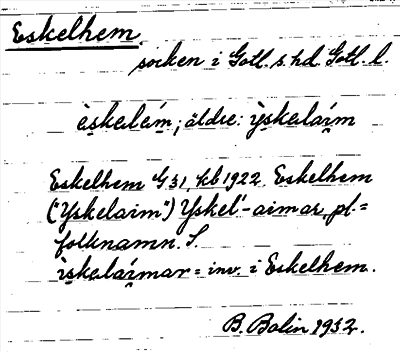 Eskelhem.
socken i Gotl. s. hd. Gotl. l.
èskelàim; äldre: ỳskelaim
Eskelhem G 31, kb 1922. Eskelhem
("Yskelaim") Yskel'-aimar, pl. =
folknamn. S.
ìskelaimar = inv. i Eskelhem.
B. Bolin 1932.